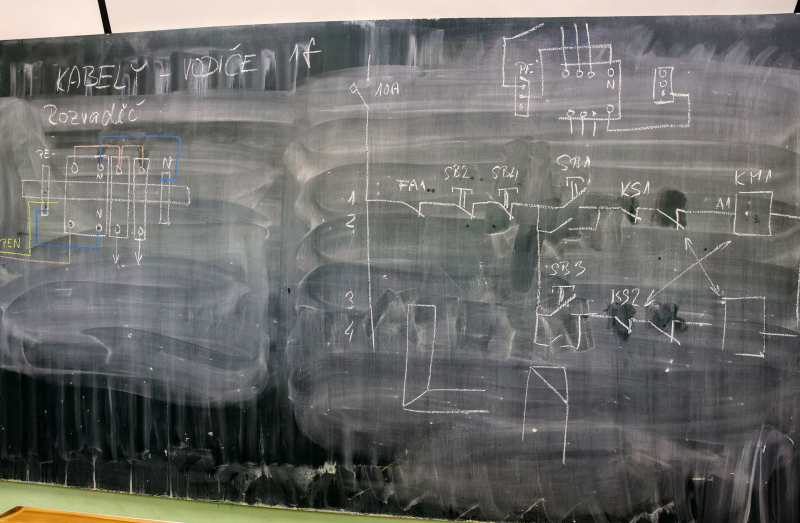 KABELY - VODIČE 1f
Rozvaděč
PE
N
N
N
PEN
10A
PE
N
N
1
2
3
4
FA1
SB2
SB4
SB1
KS1
A1
KM1
SB3
KS2